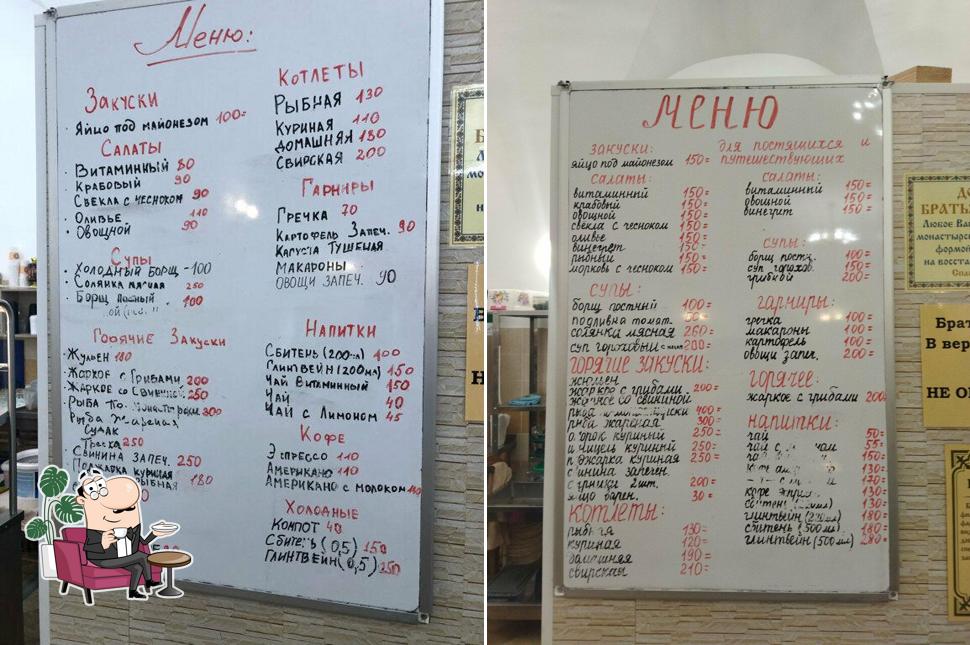 Меню:
Закуски
Яйцо под майонезом 100=
Салаты
Витаминный 80
Крабовый 90
Свекла с чесноком 90
Оливье 110
Овощной 90
Супы
Холодный борщ - 100
Солянка мясная 250
Борщ 100
Горячие Закуски
Жульен 180
Жаркое с грибами 200
Жаркое со свининой 250
Рыба по-монастырски 300
Рыба жареная
Судак
Треска 250
Свинина запеч. 250
Поджарка куриная 180
Котлеты
Рыбная 130
Куриная 110
Домашняя 180
Свирская 200
Гарниры
Гречка 70
Картофель Запеч. 90
Капуста Тушеная
Макароны
Овощи запеч. 90
Напитки
Сбитень (200мл) 100
Глинтвейн (200мл) 150
Чай Витаминный 150
Чай 40
Чай с Лимоном 45
Кофе
Эспрессо 110
Американо 110
Американо с молоком
Холодные
Компот 40
Сбитень (0,5) 150
Глинтвейн (0,5) 250
Меню
Закуски:
яйцо под майонезом 150=
Салаты:
витаминный 150=
крабовый 150=
овощной 150=
свекла с чесноком 150=
оливье 150=
винегрет 150=
рыбный 150=
морковь с чесноком 150=
Супы:
борщ постный 100=
подливна томат.
солянка мясная 260=
суп гороховый 200=
Горячие закуски:
жюльен
жаркое с грибами 200=
жаркое со свининой
400=
рыба жареная 300=
куриный 250=
куриный 250=
поджарка куриная 250=
свинина запечен.
2шт. 200=
яйцо варен. 30=
Котлеты:
рыбная 130=
куриная 120=
домашняя 190=
свирская 210=
для постящихся и
путешествующих
салаты:
витаминный 150=
овощной 150=
винегрет 150=
супы:
борщ постн. 100=
суп горохов. 150=
грибной 200=
гарниры:
гречка 100=
макароны 100=
картофель 100=
овощи запеч. 200=
горячее:
жаркое с грибами 200
напитки:
чай 50=
55=
150=
130=
170=
130=
130=
глинтвейн 180=
сбитень (500мл) 180=
глинтвейн (500мл) 280=
БРАТЬ
Любое Ва
монастырс
формой
на восста
Спа
Брат
В вер
НЕ О